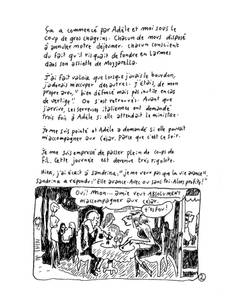 Ça a commencé par Adèle et moi sous le
coup de gros chagrins. Chacun de nous disposé
à annuler notre déjeuner. Chacun conscient
du fait qu'il risquait de fondre en larmes
dans son assiette de mozzarella.
J'ai fait valoir que lorsque j'avais le bourdon,
j'aimais m'occuper des autres. J'étais, de mon
propre aveu, "bien déprimé mais pas inutile en cas
de vertige". On s'est retrouvés. Avant que
j'arrive, les serveurs italiens ont demandé
trois fois à Adèle si elle attendait le ministre.
Je me suis pointé et Adèle a demandé si elle pouvait
m'accompagner aux César. Parce que c'est le soir.
Je me suis empressé de passer plein de coups de
fil. Cette journée est devenue très rigolote.
Hier, j'ai écrit à Sandrina, "je ne veux pas que la vie avance".
Sandrina a répondu: "Elle avance. Avec ou sans toi. Alors profite!"
Oui! Mon... amie veut ABSOLUMENT
m'accompagner aux César
c'est où?